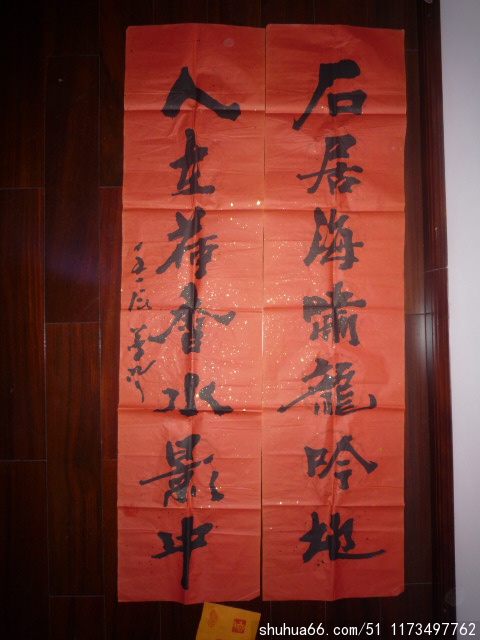 石居海啸龍吟地
人在荷香水影中
shuhua66.com/51 1173497762